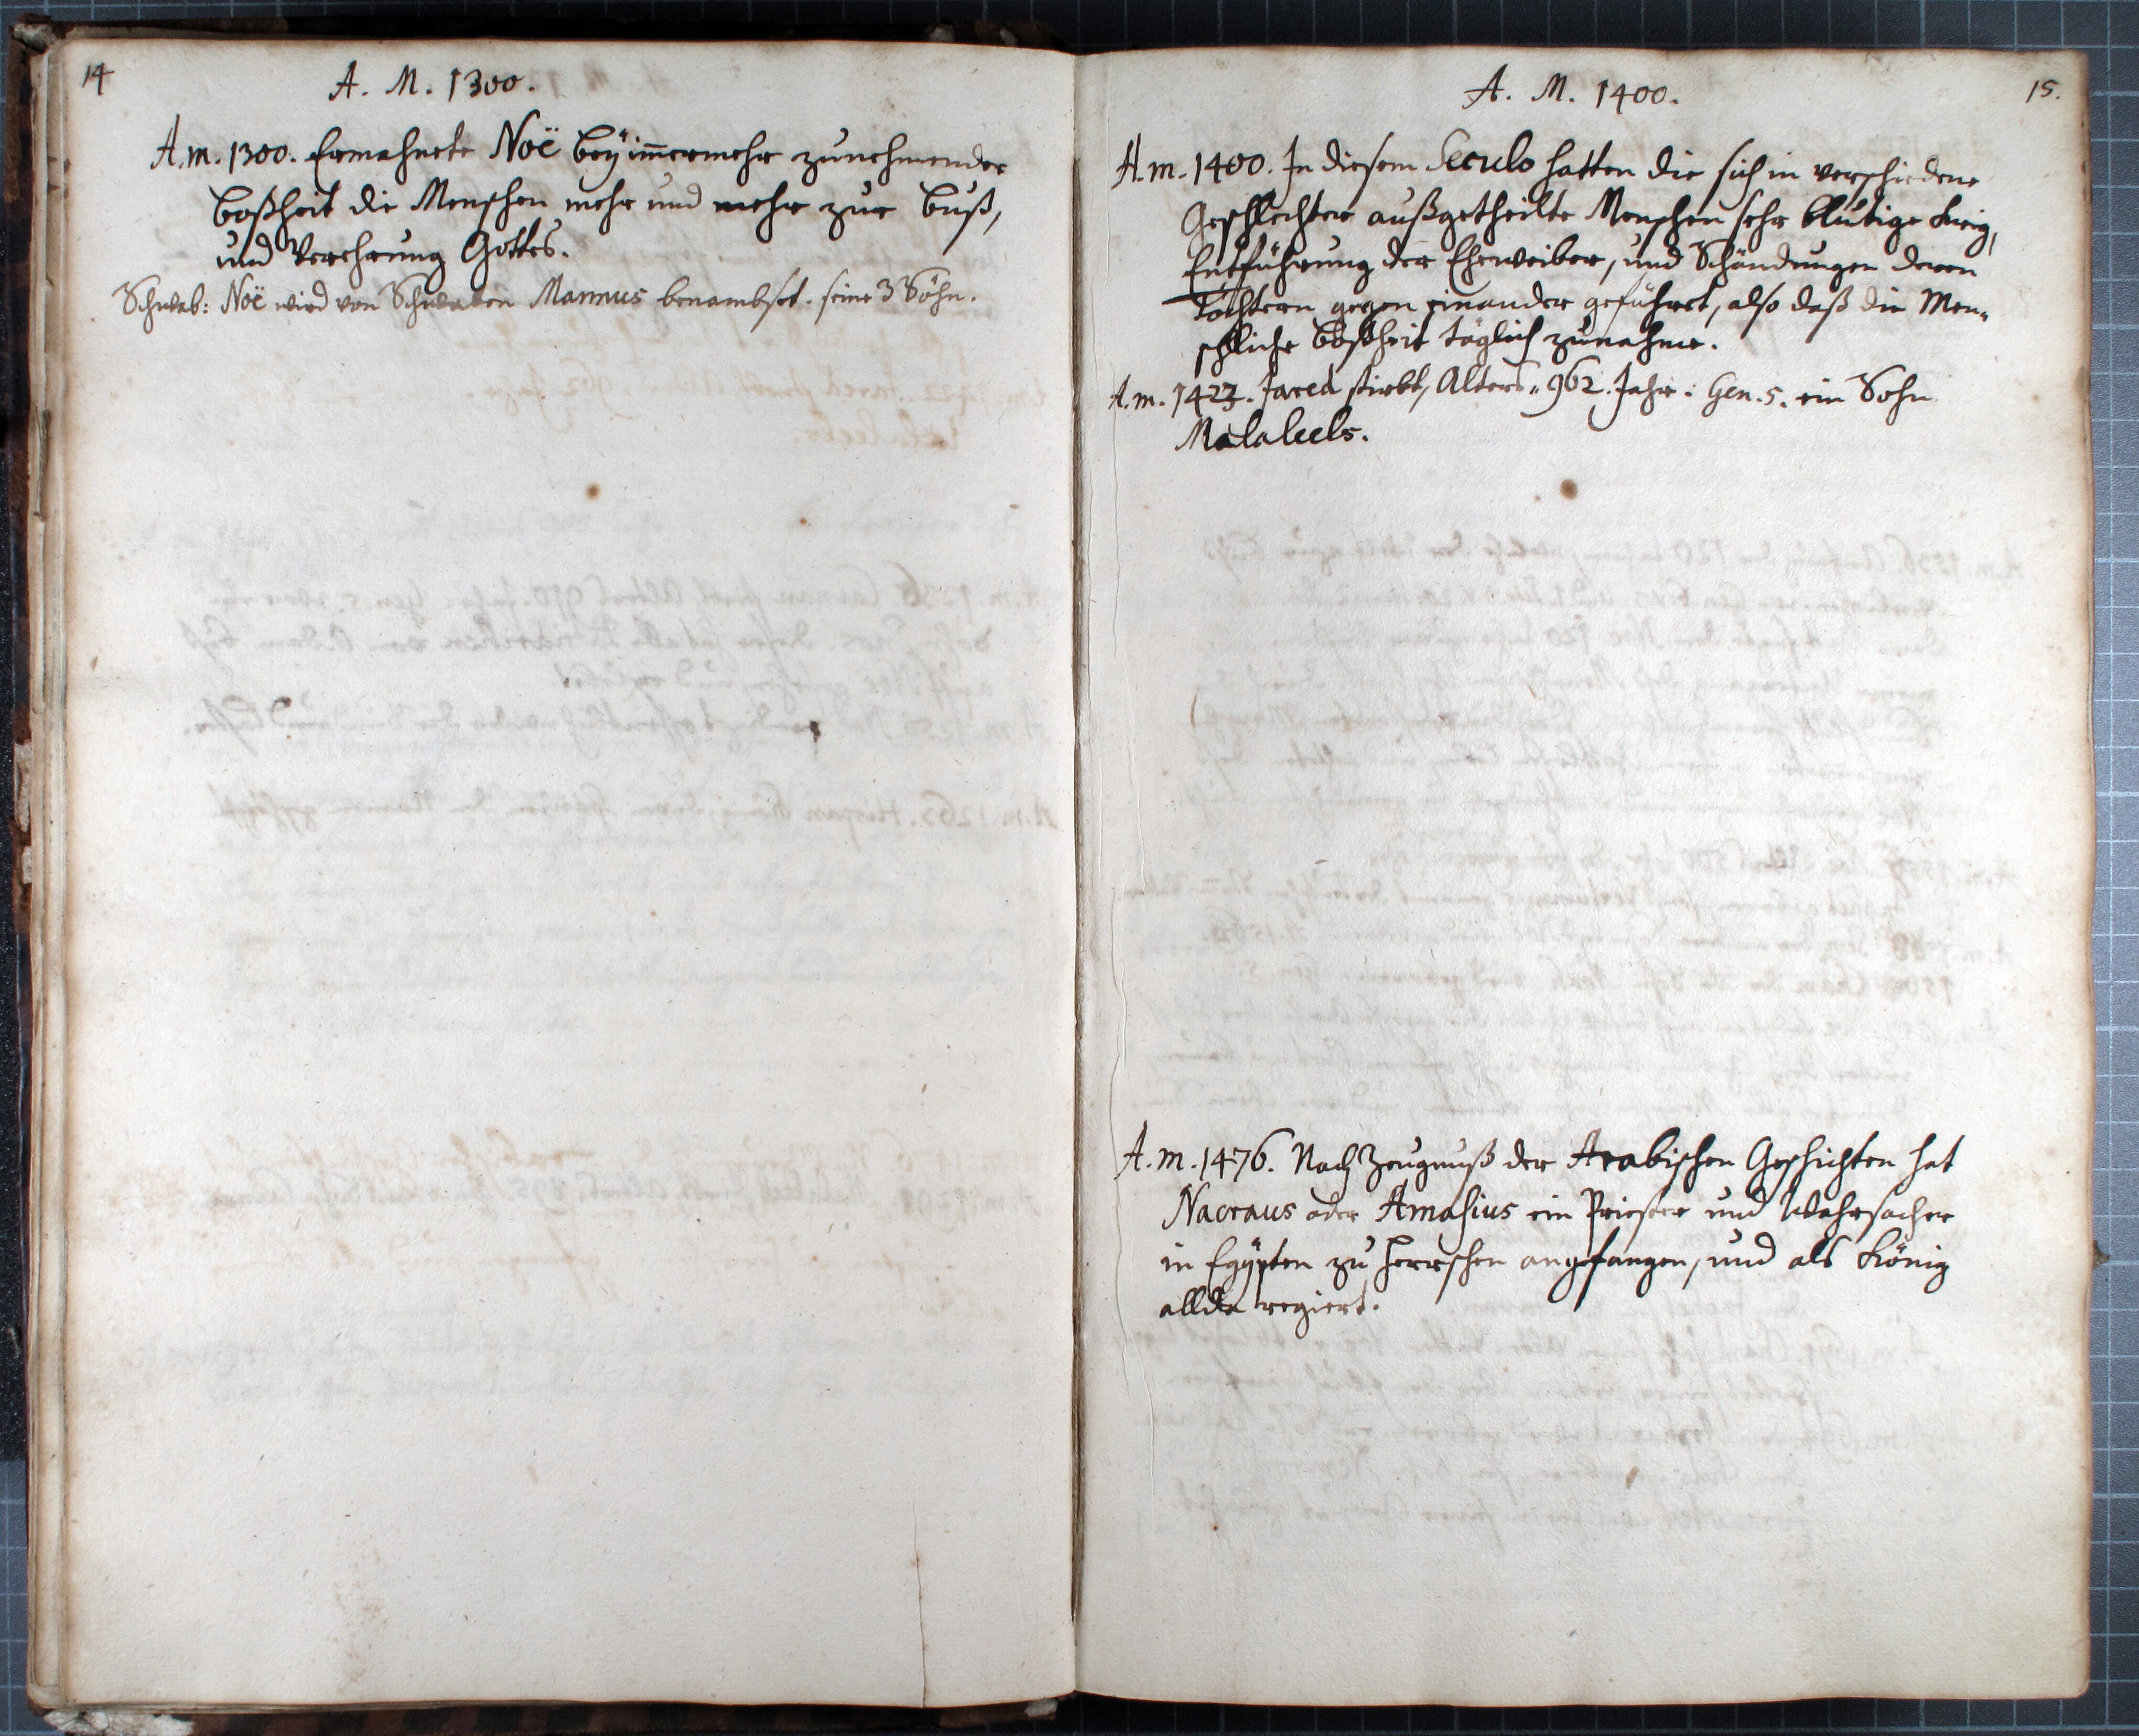 14
A. M. 1300.
A.m. 1300. Ermahnete Noë beÿ immermehr zunehmender
boßheit die Menschen mehr und mehr zur buß,
und Verehrung Gottes.
Schwab: Noë wird von Schwaben Mannus benambset. seine 3 Söhn.
A. M. 1400.
15.
A.m. 1400. In diesem Seculo hatten die sich in verschidene
Geschlechter außgetheilte Menschen sehr blutige Krieg,
Entführung der Eheweiber, und Schändungen deren
Töchtern gegen einander geführet, also daß die Men„
schliche boßheit täglich zunahme.
A.m. 1423. Jared stirbt, Alters „ 962. Jahr: Gen. 5. ein Sohn
Malaleels.
A.m. 1476. Nach Zeugnuß der Arabischen Geschichten hat
Nacraus oder Amasius ein Priester und Wahrsacher
in Egÿpten zu herrschen angefangen, und als König
allda regiert.